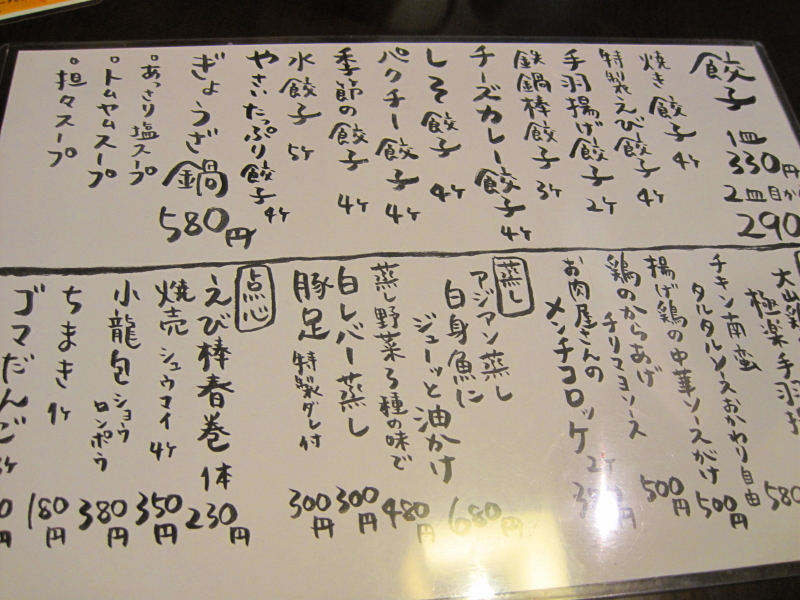 餃子
1皿
330円
2皿目か
290
焼き餃子 4ヶ
特製えび餃子 4ヶ
手羽揚げ餃子 2ヶ
鉄鍋棒餃子 3ヶ
チーズカレー餃子 4ヶ
しそ餃子 4ヶ
パクチー餃子 4ヶ
季節の餃子 4ヶ
水餃子 5ヶ
やさいたっぷり餃子 4ヶ
ぎょうざ鍋 580円
・あっさり塩スープ
・トムヤムスープ
・担々スープ
大山鶏
極楽手羽
580
チキン南蛮
タルタルソースおかわり自由
500円
揚げ鶏の中華ソースがけ
500円
鶏のからあげ
チリマヨソース
お肉屋さんの
メンチコロッケ 2ヶ
円
蒸し
アジアン蒸し
白身魚に
ジューッと油かけ
680円
蒸し野菜3種の味で
480円
白レバー蒸し
300円
豚足 特製ダレ付
300円
点心
えび棒春巻 1本
230円
焼売 シュウマイ 4ヶ
350円
小龍包 ショウロンポウ
380円
ちまき 1ヶ
180円
ゴマだんご